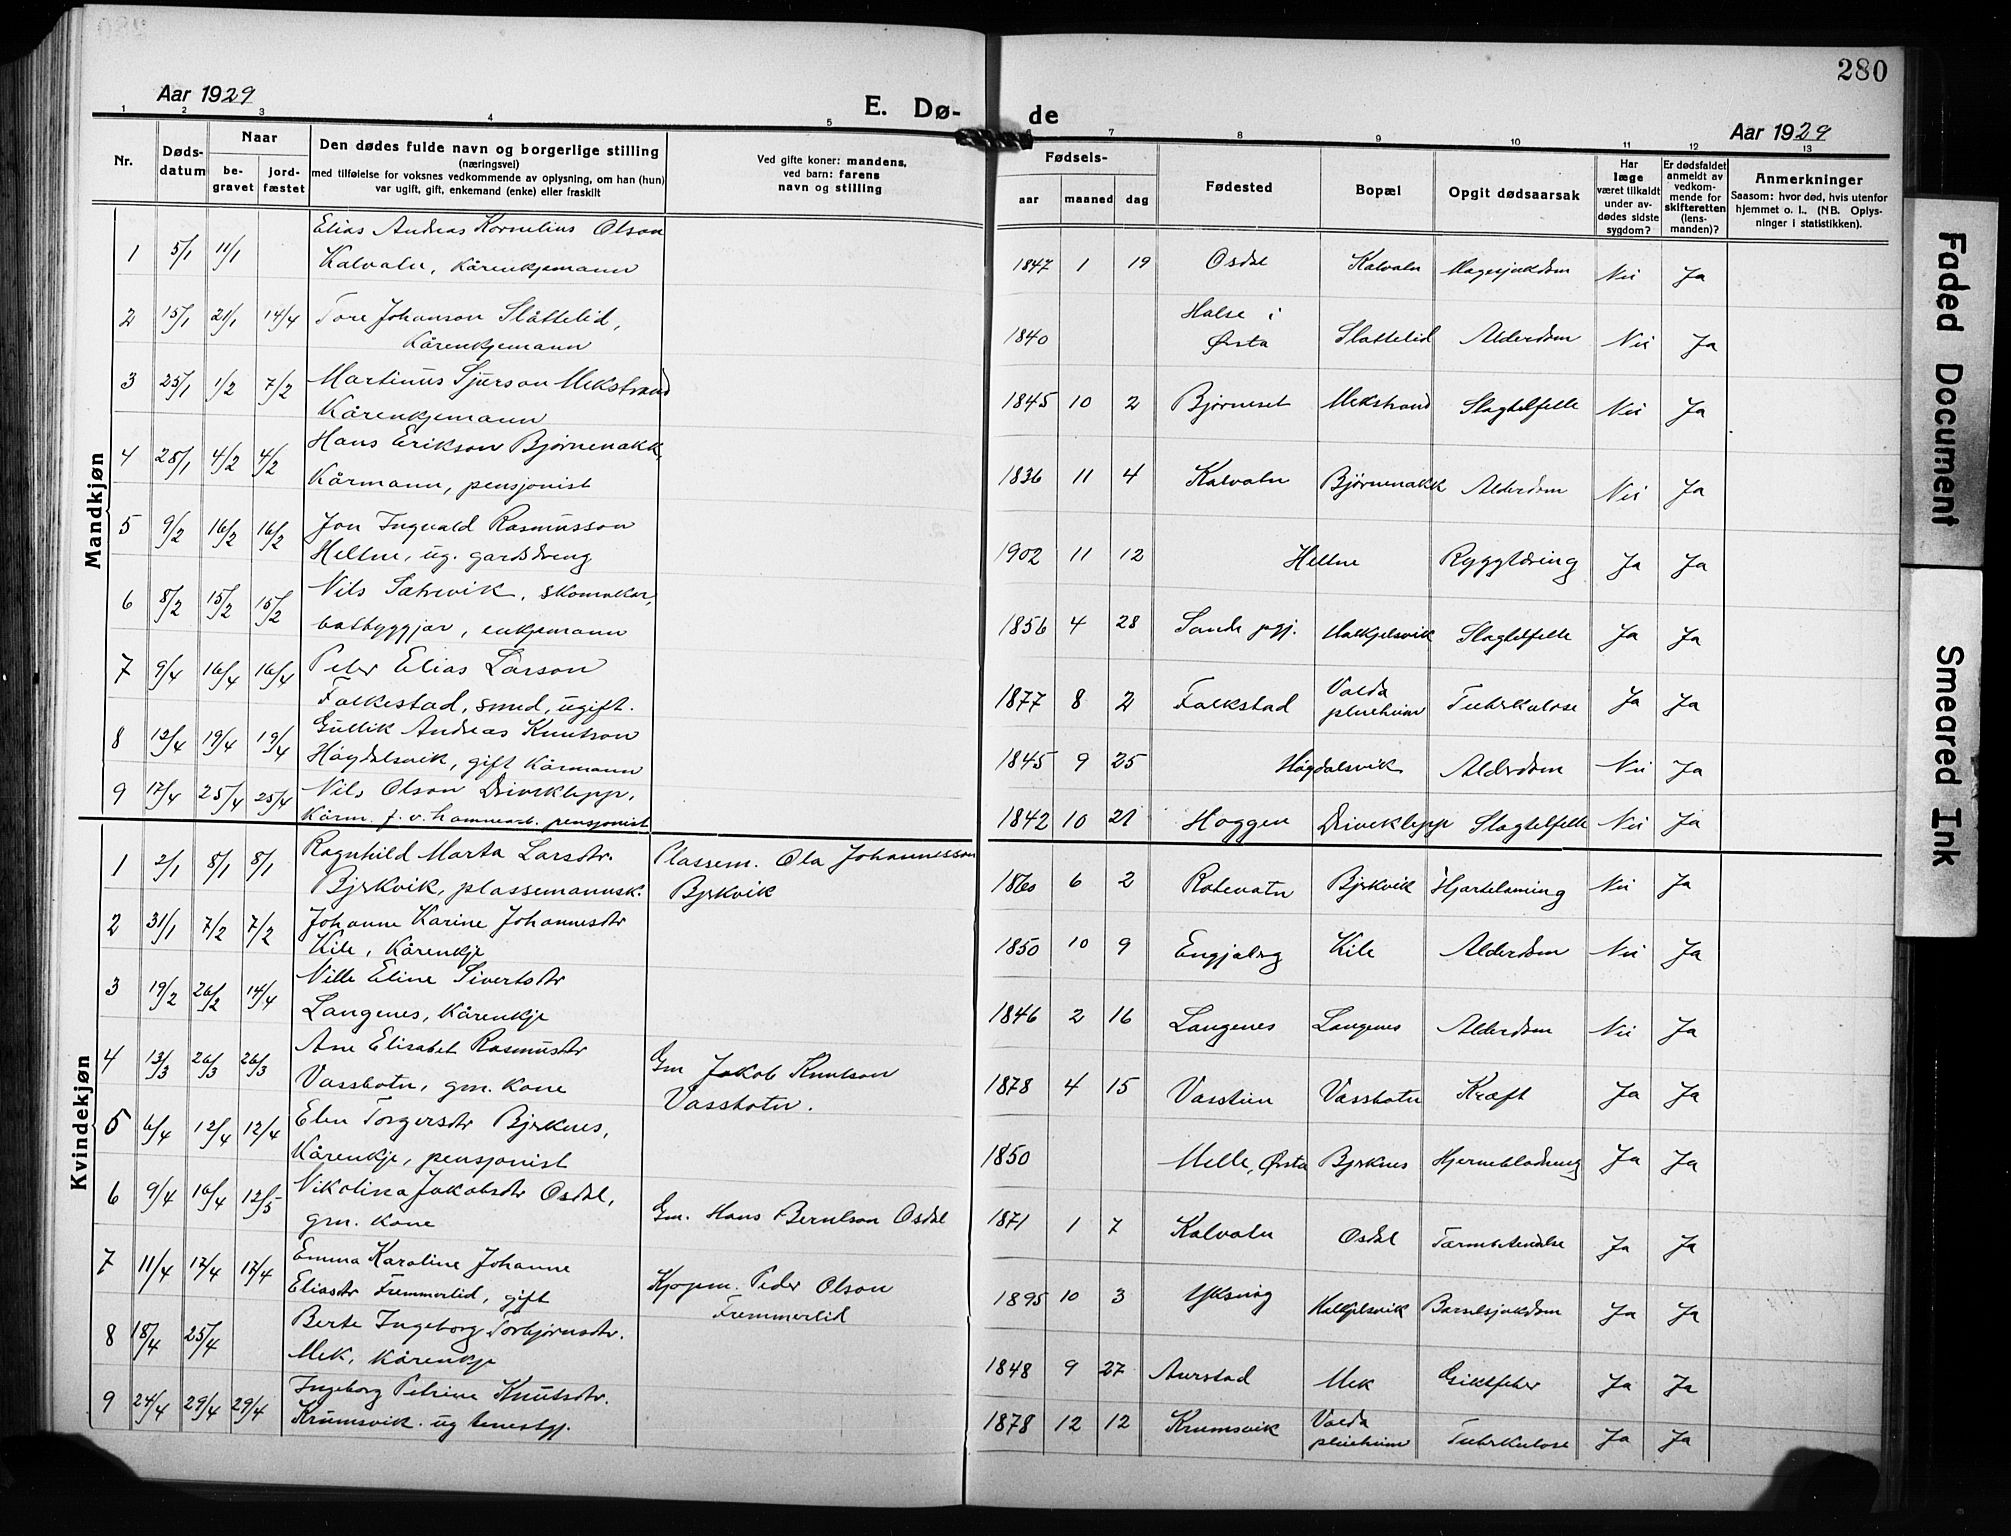 280
Aar 1929
E. Dø-
de
Aar 1929
1 2 3 4 5 6 7 8 9 10 11 12 13
Nr.
Døds-
datum
Naar
be-
gravet
jord-
fæstet
Den dødes fulde navn og borgerlige stilling
(næringsvei)
med tilføielse for voksnes vedkommende av oplysning, om han (hun)
var ugift, gift, enkemand (enke) eller fraskilt
Ved gifte koner: mandens,
ved barn: farens
navn og stilling
Fødsels-
aar maaned dag
Fødested
Bopæl
Opgit dødsaarsak
Har
læge
været tilkaldt
under av-
dødes sidste
sygdom?
Er dødsfaldet
anmeldt av
vedkom-
mende for
skifteretten
(lens-
manden)?
Anmerkninger
Saasom: hvor død, hvis utenfor
hjemmet o. l.. (NB. Oplys-
ninger i statistikken).
Mandkjøn
Elias Andreas Kornelius Olson
1 5/1 11/1 Kalvatn, Kårenkjemann 1847 1 19 Osdal Kalvatn Magesjukdom Nei Ja
2 15/1 21/1 14/4 Tore Johanson Slåttelid,
Kårenkjemann 1840 Halse i
Ørsta Slåttelid Alderdom Nei Ja
3 25/1 1/2 7/2 Martinus Sjurson Mekstrand
Kårenkjemann 1845 10 2 Bjørneset Mekstrand Slagtelfelle Nei Ja
4 28/1 4/2 4/2 Hans Erikson Bjørnenakk,
Kårmann, pensjonist 1836 11 4 Kalvatn Bjørnenakk Alderdom Nei Ja
5 9/2 16/2 16/2 Jon Ingvald Rasmusson
Heltne, ug. gardsdreng 1902 11 12 Heltne Ryggtæring Ja Ja
6 8/2 15/2 15/2 Nils Sætrevik, skomakar,
båtbyggjar, enkjemann 1856 4 28 Sande pgj. Halkjelsvik Slagtelfelle Ja Ja
7 9/4 16/4 16/4 Peter Elias Larson
Falkestad, smed, ugift. 1877 8 2 Falkstad Volda
pleieheim Tuberkulose Ja Ja
8 12/4 19/4 19/4 Gullik Andreas Knutson
Høgdalsvik, gift kårmann 1845 9 25 Høgdalsvik Alderdom Nei Ja
9 17/4 25/4 25/4 Nils Olson Driveklepp,
Kårm. f. v. hamnearb. pensjonist 1842 10 21 Hoggen Driveklepp Slagtelfelle Nei Ja
Kvindekjøn
1 2/1 8/1 8/1 Ragnhild Marta Larsdtr. Plassem. Ola Johannesson
Bjrkvik, plassemannsk. Bjrkvik 1860 6 2 Rotevatn Bjrkvik Hjartelaming Nei Ja
2 31/1 7/2 7/2 Johanne Karine Johannesdtr
Kile, Kårenkje 1850 10 9 Engjaberg Kile Alderdom Nei Ja
3 19/2 26/2 14/4 Nille Eline Sivertsdtr
Langenes, Kårenkje 1846 2 16 Langenes Langenes Alderdom Nei Ja
4 13/3 26/3 26/3 Ane Elisabet Rasmusdtr Gm Jakob Knutson
Vassbotn, gm. kone Vassbotn. 1878 4 15 Vasstein Vassbotn Kræft Ja Ja
5 6/4 12/4 12/4 Elen Torgersdtr Bjrknes,
Kårenkje, pensjonist 1850 Melle, Ørsta Bjrknes Hjerneblødning Ja Ja
6 9/4 16/4 12/5 Nikolina Jakobsdtr Osdal,
gm. kone Gm. Hans Berntson Osdal 1871 1 7 Kalvatn Osdal Tarmbetendelse Ja Ja
7 11/4 17/4 17/4 Emma Karoline Johanne
Eliasdtr Fremmerlid, gift Kjøpm. Peder Olson
Fremmerlid 1895 10 3 Yksnøy Halkjelsvik Barselsjukdom Ja Ja
8 18/4 25/4 Berte Ingeborg Torbjørnsdtr.
Mek, Kårenkje 1848 9 27 Aurstad Mek Giktfeber Ja Ja
9 24/4 29/4 29/4 Ingeborg Petrine Knutsdtr.
Krumsvik. ug tenestgj. 1878 12 12 Krumsvik Volda
pleieheim Tuberkulose Ja Ja
Faded Document
Smeared Ink